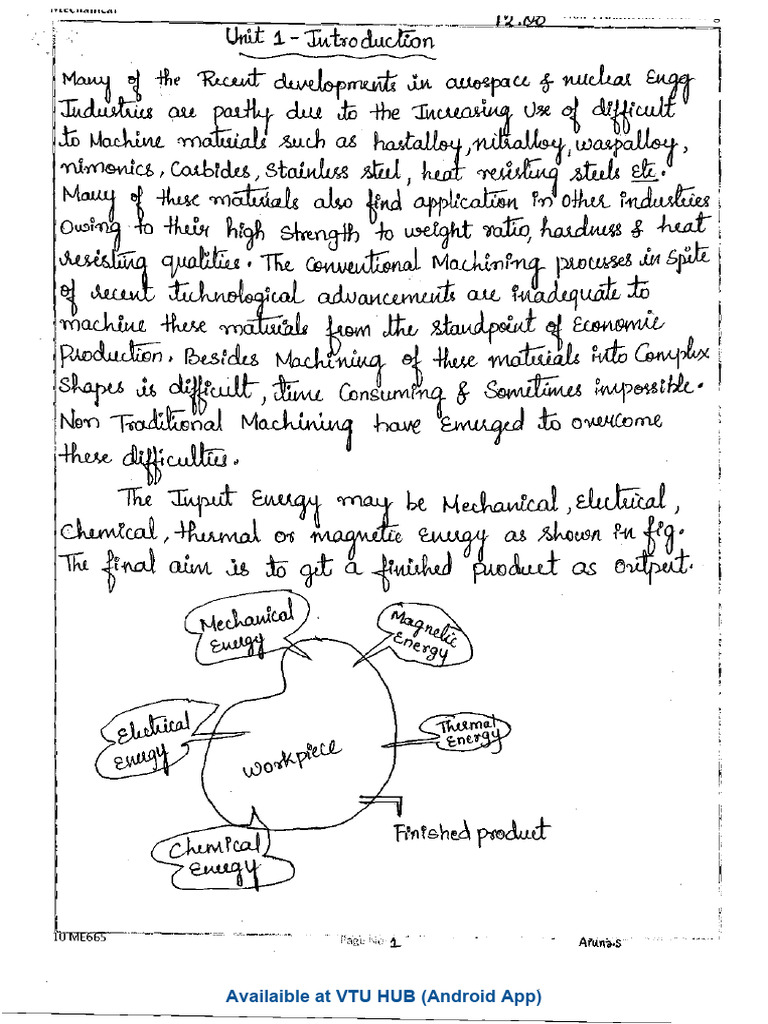 Mechanical
Unit 1 - Introduction
Many of the Recent developments in aerospace & nuclear Engg
Industries are partly due to the Increasing Use of difficult
to Machine materials such as hastalloy, nitralloy, waspalloy,
nimonics, Carbides, Stainless steel, heat resisting steels Etc.
Many of these materials also find application in other industries
Owing to their high Strength to weight ratio, hardness & heat
resisting qualities. The Conventional Machining processes in Spite
of recent technological advancements are inadequate to
machine these materials from the standpoint of Economic
Production. Besides Machining of these materials into Complex
Shapes is difficult, time Consuming & Sometimes impossible.
Non Traditional Machining have Emerged to overcome
these difficulties.
The Input Energy may be Mechanical, Electrical,
Chemical, thermal or magnetic energy as shown in fig.
The final aim is to get a finished product as output.
Mechanical
Energy
Magnetic
Energy
Electrical
Energy
Thermal
Energy
Workpiece
Finished product
Chemical
Energy
10 ME665
Page No 1
Aruna.S
Availaible at VTU HUB (Android App)